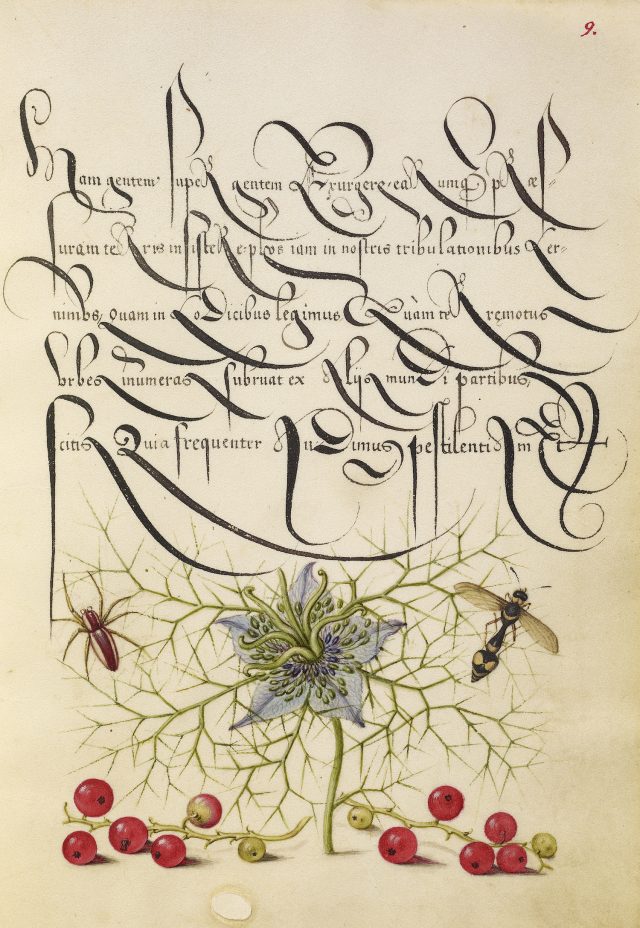 9.
Nam gentem super gentem Exurgere, earumq; præs-
suram terris insistere, plus iam in nostris tribulationibus cer-
nimus, Quam in codicibus legimus Quàm terræmotus
Urbes inumeras subruat ex aliis mundi partibus,
scitis Quia frequenter audiuimus pestilentiam Et